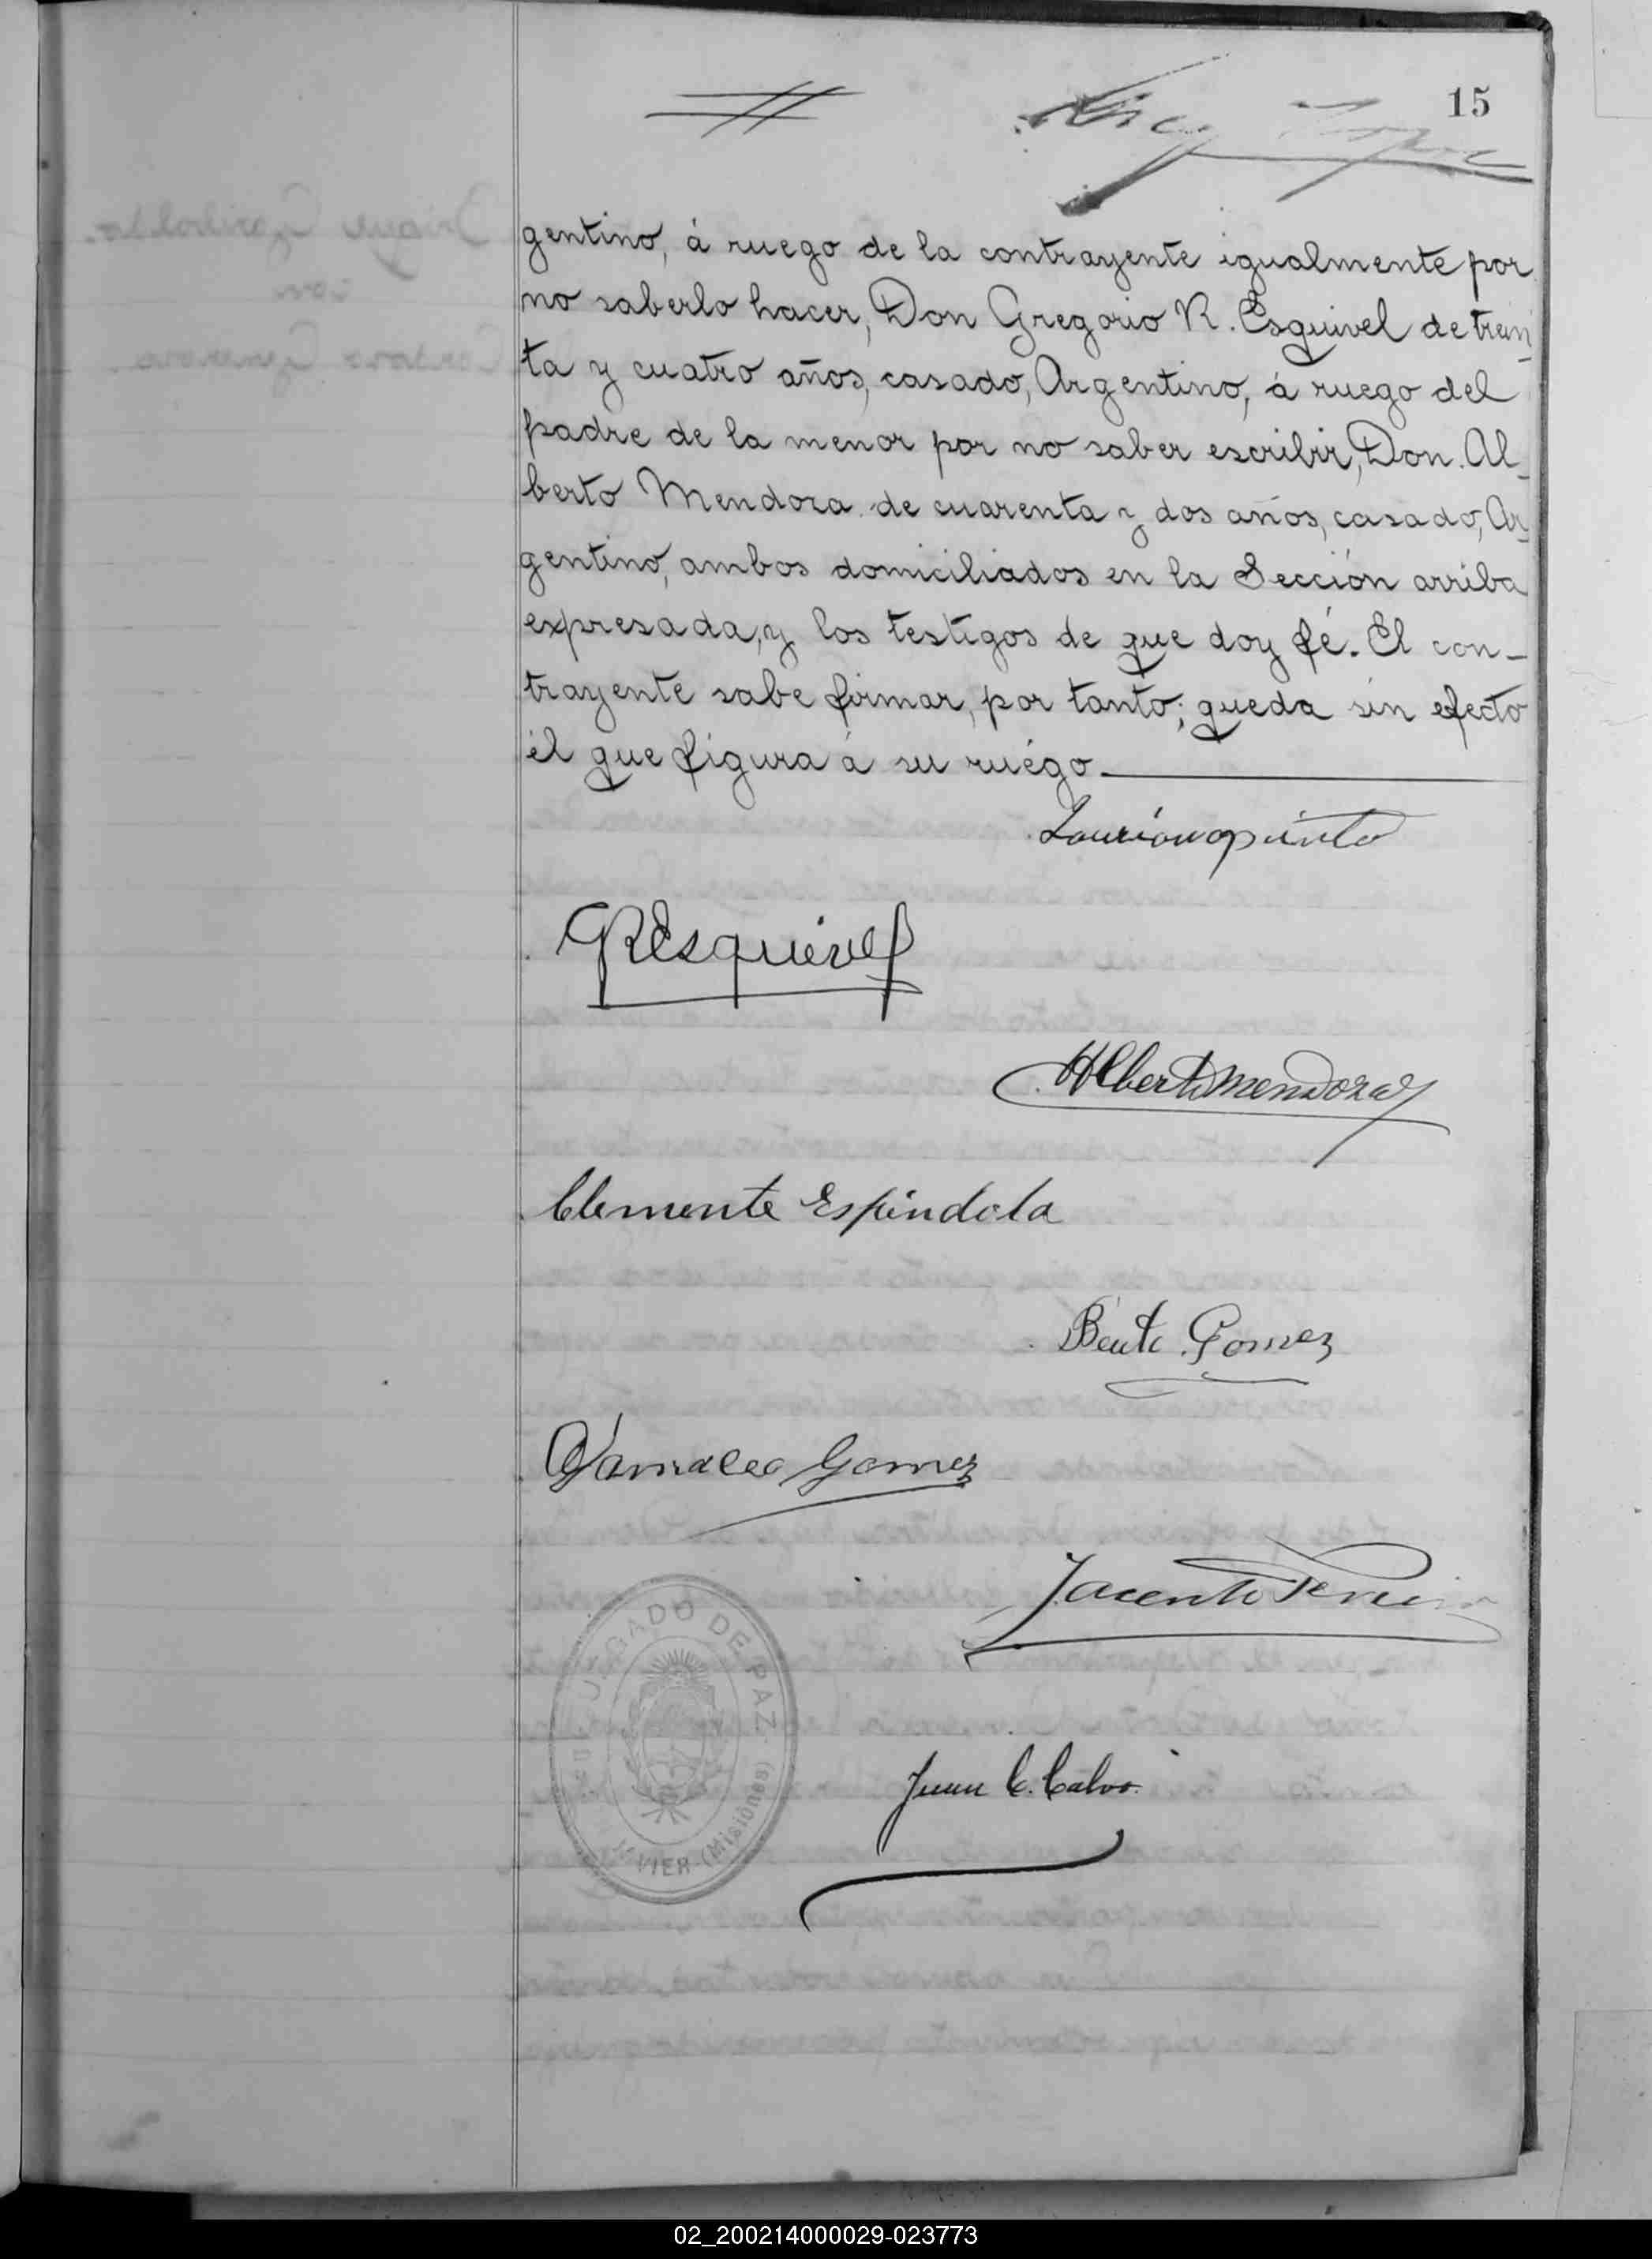 15
gentino, á ruego de la contrayente igualmente por
no saberlo hacer, Don Gregorio R. Esquivel de trein
ta y cuatro años, casado, Argentino, á ruego del
padre de la menor por no saber escribir, Don. Al_
berto Mendoza de cuarenta y dos años, casado, Ar_
gentino, ambos domiciliados en la Sección arriba
expresada, y los testigos de que doy fé. El con_
trayente sabe firmar, por tanto; queda sin efecto
él que figura á su ruégo.
pinto
GREsquivel
Alberto Mendoza
Clemente Espindola
Bento Gomez
Damaceo Gomez
Jacento
JUZGADO DE PAZ
JAVIER (Misiones)
Juan C. Calvo.
02_200214000029-023773